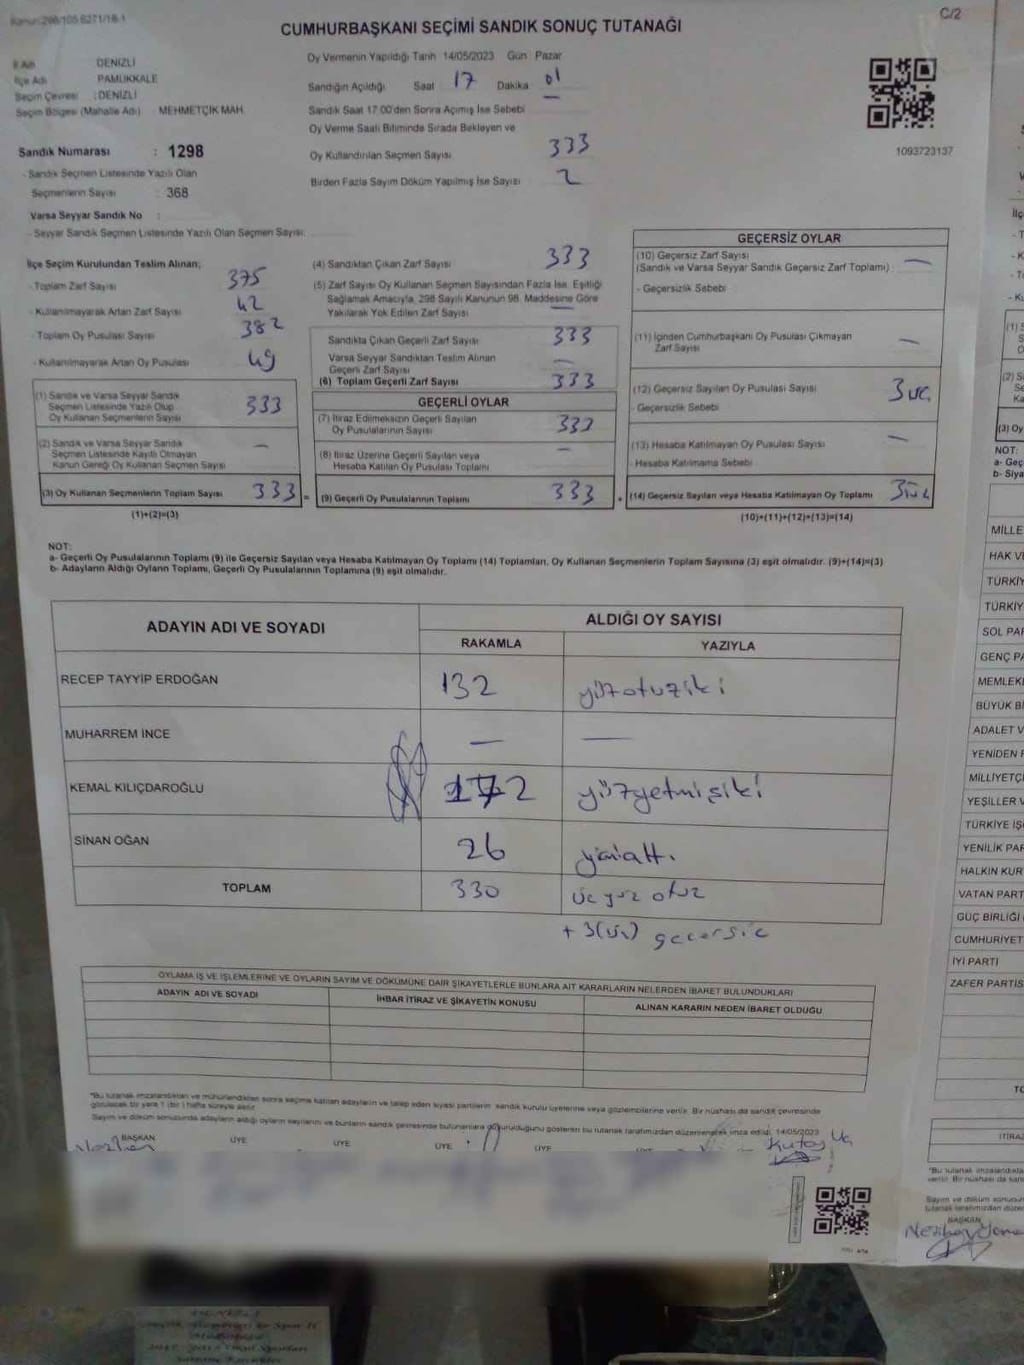 Kanun:298/105 6271/18-1
C/2
CUMHURBAŞKANI SEÇİMİ SANDIK SONUÇ TUTANAĞI
İl Adı DENİZLİ
İlçe Adı PAMUKKALE
Seçim Çevresi : DENİZLİ
Seçim Bölgesi (Mahalle Adı) MEHMETÇİK MAH.
Sandık Numarası : 1298
- Sandık Seçmen Listesinde Yazılı Olan
Seçmenlerin Sayısı : 368
Varsa Seyyar Sandık No :
- Seyyar Sandık Seçmen Listesinde Yazılı Olan Seçmen Sayısı:
Oy Vermenin Yapıldığı Tarih 14/05/2023 Gün Pazar
Sandığın Açıldığı Saat 17 Dakika 01
Sandık Saat 17:00'den Sonra Açılmış İse Sebebi —
Oy Verme Saati Bitiminde Sırada Bekleyen ve
Oy Kullandırılan Seçmen Sayısı 333
Birden Fazla Sayım Döküm Yapılmış İse Sayısı 2
1093723137
İlçe Seçim Kurulundan Teslim Alınan;
- Toplam Zarf Sayısı 375
- Kullanılmayarak Artan Zarf Sayısı 42
- Toplam Oy Pusulası Sayısı 382
- Kullanılmayarak Artan Oy Pusulası 49
(1) Sandık ve Varsa Seyyar Sandık
Seçmen Listesinde Yazılı Olup
Oy Kullanan Seçmenlerin Sayısı 333
(2) Sandık ve Varsa Seyyar Sandık
Seçmen Listesinde Kayıtlı Olmayan
Kanun Gereği Oy Kullanan Seçmen Sayısı —
(3) Oy Kullanan Seçmenlerin Toplam Sayısı 333
(1)+(2)=(3)
(4) Sandıktan Çıkan Zarf Sayısı 333
(5) Zarf Sayısı Oy Kullanan Seçmen Sayısından Fazla İse, Eşitliği
Sağlamak Amacıyla, 298 Sayılı Kanunun 98. Maddesine Göre
Yakılarak Yok Edilen Zarf Sayısı —
Sandıkta Çıkan Geçerli Zarf Sayısı 333
Varsa Seyyar Sandıktan Teslim Alınan
Geçerli Zarf Sayısı —
(6) Toplam Geçerli Zarf Sayısı 333
GEÇERLİ OYLAR
(7) İtiraz Edilmeksizin Geçerli Sayılan
Oy Pusulalarının Sayısı 333
(8) İtiraz Üzerine Geçerli Sayılan veya
Hesaba Katılan Oy Pusulası Toplamı —
= (9) Geçerli Oy Pusulalarının Toplamı 333
GEÇERSİZ OYLAR
(10) Geçersiz Zarf Sayısı
(Sandık ve Varsa Seyyar Sandık Geçersiz Zarf Toplamı) : —
- Geçersizlik Sebebi
(11) İçinden Cumhurbaşkanı Oy Pusulası Çıkmayan
Zarf Sayısı —
(12) Geçersiz Sayılan Oy Pusulası Sayısı 3 üç
- Geçersizlik Sebebi
(13) Hesaba Katılmayan Oy Pusulası Sayısı —
- Hesaba Katılmama Sebebi
+ (14) Geçersiz Sayılan veya Hesaba Katılmayan Oy Toplamı 3üç
(10)+(11)+(12)+(13)=(14)
NOT:
a- Geçerli Oy Pusulalarının Toplamı (9) ile Geçersiz Sayılan veya Hesaba Katılmayan Oy Toplamı (14) Toplamları, Oy Kullanan Seçmenlerin Toplam Sayısına (3) eşit olmalıdır. (9)+(14)=(3)
b- Adayların Aldığı Oyların Toplamı, Geçerli Oy Pusulalarının Toplamına (9) eşit olmalıdır.
ADAYIN ADI VE SOYADI
ALDIĞI OY SAYISI
RAKAMLA YAZIYLA
RECEP TAYYİP ERDOĞAN 132 yüzotuziki
MUHARREM İNCE — —
KEMAL KILIÇDAROĞLU 172 yüzyetmişiki
SİNAN OĞAN 26 yirmialtı
TOPLAM 330 üç yüz otuz
+ 3(üç) geçersiz
OYLAMA İŞ VE İŞLEMLERİNE VE OYLARIN SAYIM VE DÖKÜMÜNE DAİR ŞİKAYETLERLE BUNLARA AİT KARARLARIN NELERDEN İBARET BULUNDUKLARI
ADAYIN ADI VE SOYADI İHBAR İTİRAZ VE ŞİKAYETİN KONUSU ALINAN KARARIN NEDEN İBARET OLDUĞU
*Bu tutanak imzalandıktan ve mühürlendikten sonra seçime katılan adayların ve talep eden siyasi partilerin sandık kurulu üyelerine veya gözlemcilerine verilir. Bir nüshası da sandık çevresinde
görülecek bir yere 1 (bir) hafta süreyle asılır.
Sayım ve döküm sonucunda adayların aldığı oyların sayılarını ve bunların sandık çevresinde bulunanlara duyurulduğunu gösteren bu tutanak tarafımızdan düzenlenerek imza edildi. 14/05/2023
BAŞKAN ÜYE ÜYE ÜYE ÜYE ÜYE
MİLLE
HAK VE
TÜRKİY
TÜRKİY
SOL PAR
GENÇ PA
MEMLEKE
BÜYÜK Bİ
ADALET V
YENİDEN R
MİLLİYETÇİ
YEŞİLLER V
TÜRKİYE İŞÇ
YENİLİK PAR
HALKIN KUR
VATAN PART
GÜÇ BİRLİĞİ
CUMHURİYET
İYİ PARTİ
ZAFER PARTİS
TO
İTİRAZ
BAŞKAN